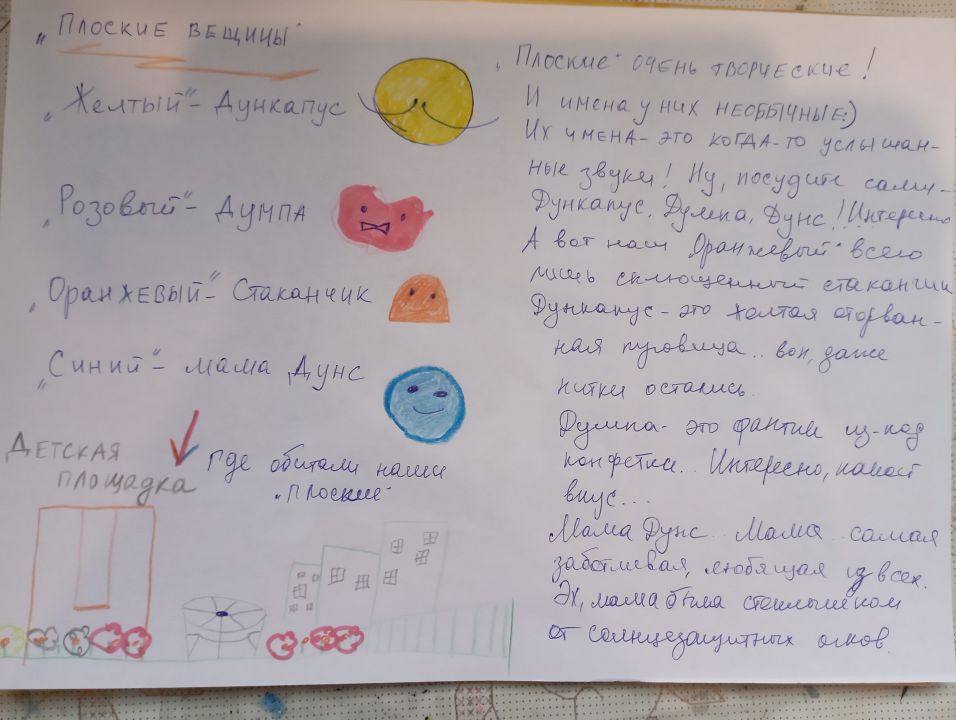 „Плоские вещицы"
„Желтый" - Дункапус
„Розовый" - Думпа
„Оранжевый" - Стаканчик
„Синий" - мама Дунс
Детская
площадка
где обитали наши
„плоские"
„Плоские" очень творческие!
И имена у них необычные:)
Их имена - это когда-то услышан-
ные звуки! Ну, посудите сами -
Дункапус, Думпа, Дунс! Интересно
А вот наш „Оранжевый" всего
лишь сплющенный стаканчик
Дункапус - это желтая оторван-
ная пуговица.. вон, даже
нитки остались.
Думпа - это фантик из-под
конфетки.. Интересно, какой
вкус...
Мама Дунс.. Мама.. самая
заботливая, любящая из всех.
Эх, мама была стеклышком
от солнцезащитных очков.